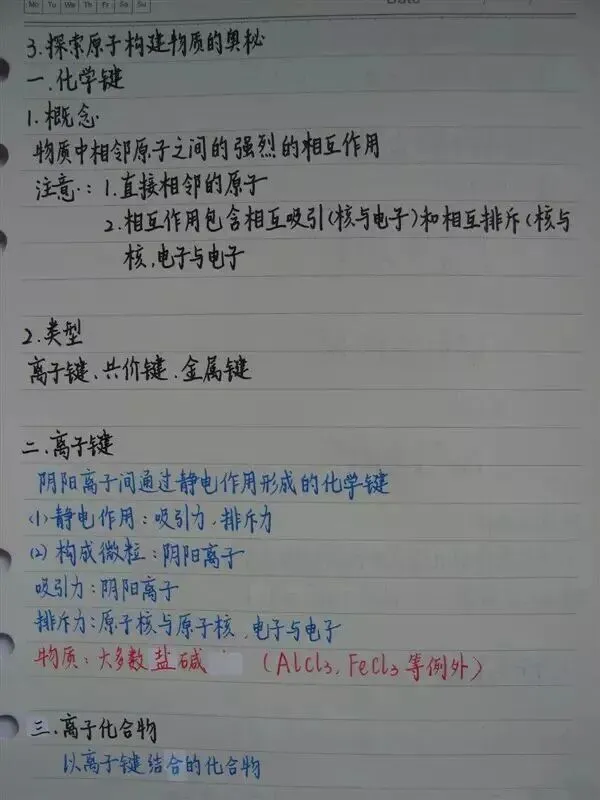 Mo Tu We Th Fr Sa Su
Date
3.探索原子构建物质的奥秘
一.化学键
1.概念
物质中相邻原子之间的强烈的相互作用
注意:1.直接相邻的原子
2.相互作用包含相互吸引(核与电子)和相互排斥(核与
核,电子与电子
2.类型
离子键、共价键.金属键
二.离子键
阴阳离子间通过静电作用形成的化学键
(1)静电作用:吸引力.排斥力
(2)构成微粒:阴阳离子
吸引力:阴阳离子
排斥力:原子核与原子核,电子与电子
物质:大多数盐碱 (AlCl3,FeCl3等例外)
三.离子化合物
以离子键结合的化合物